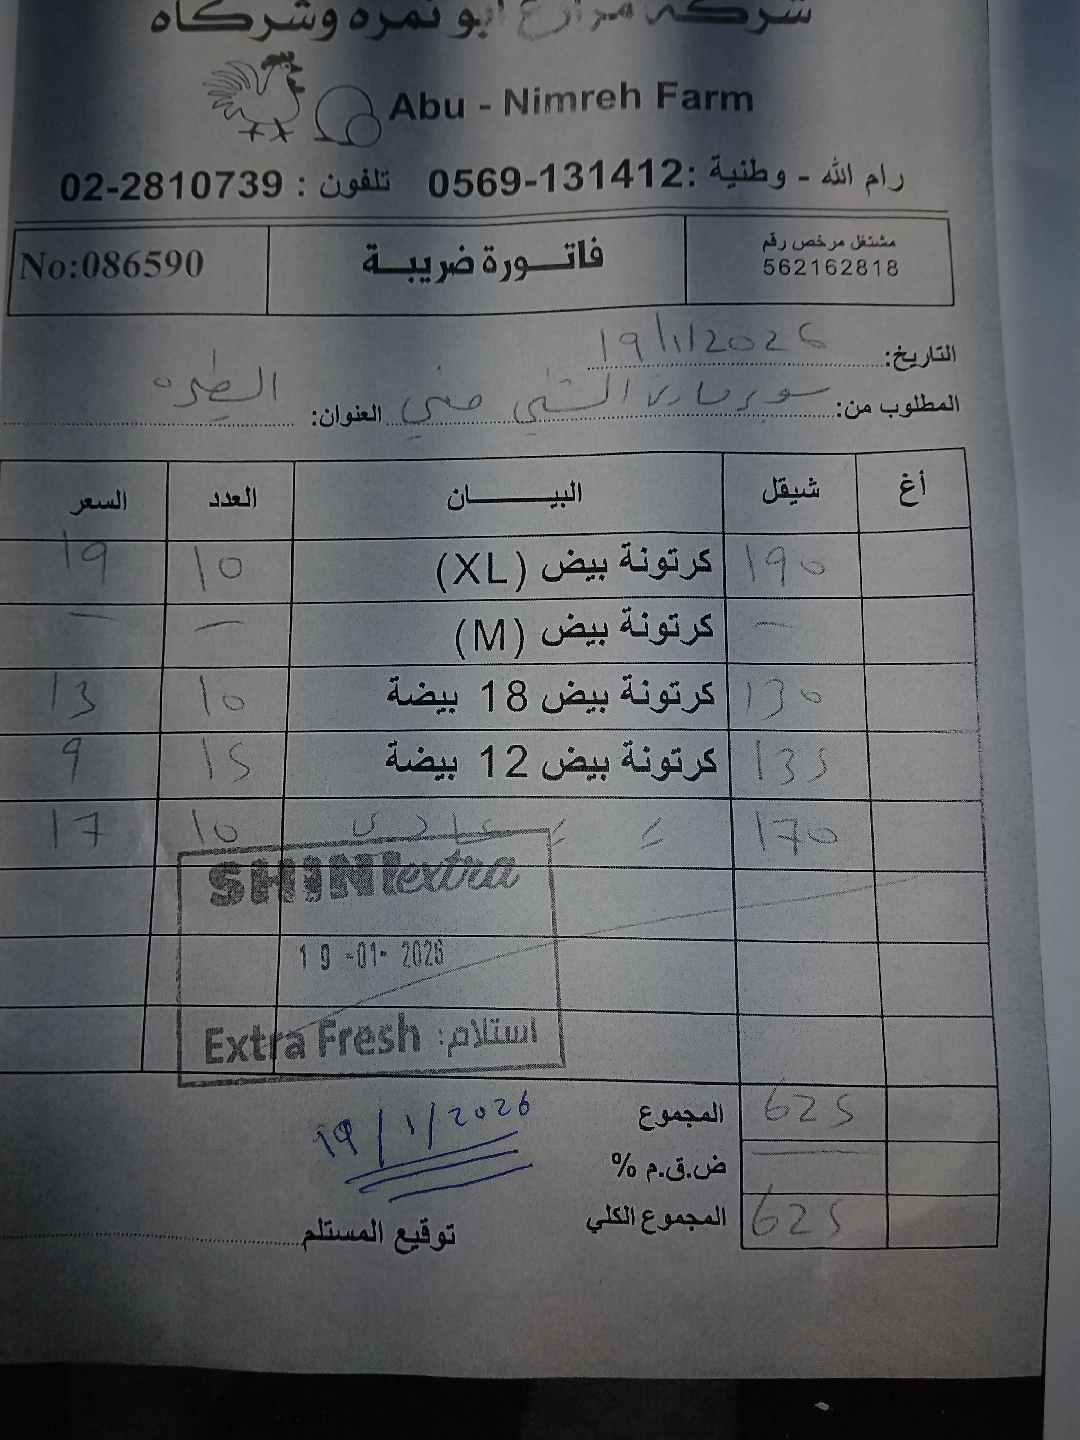 شركة مزارع أبو نمره وشركاه
Abu - Nimreh Farm
رام الله - وطنية :0569-131412 تلفون : 02-2810739
مشتغل مرخص رقم
562162818
فاتـــورة ضريبــة
No:086590
التاريخ: 19/1/2026
المطلوب من: سوبر ماركت الشني العنوان: الطيره
أغ شيقل البيـــــــان العدد السعر
190 كرتونة بيض (XL) 10 19
- كرتونة بيض (M) - -
130 كرتونة بيض 18 بيضة 10 13
135 كرتونة بيض 12 بيضة 15 9
170 = = عادي 10 17
SHINI extra
19 -01- 2026
Extra Fresh :استلام
المجموع 625
ض.ق.م %
المجموع الكلي 625
19/1/2026
توقيع المستلم